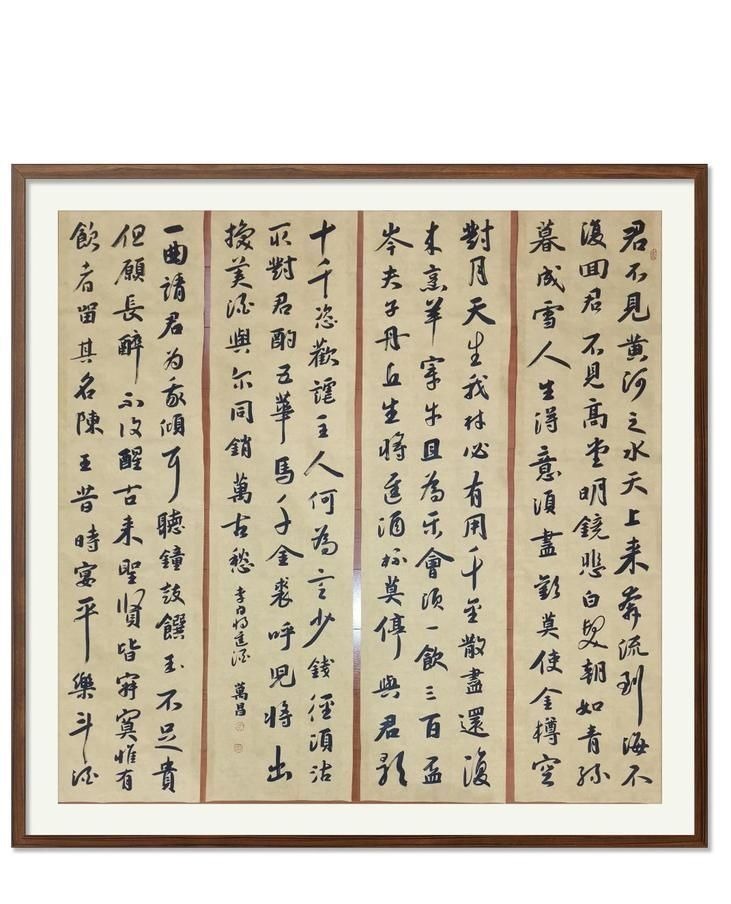 君不見黄河之水天上来奔流到海不
復回君不見高堂明鏡悲白髮朝如青絲
暮成雪人生得意須盡歡莫使金樽空
對月天生我材必有用千金散盡還復
来烹羊宰牛且為樂會須一飲三百盃
岑夫子丹丘生將進酒杯莫停與君歌
十千恣歡謔主人何為言少錢徑須沽
取對君酌五華馬千金裘呼兒將出
換美酒與尔同銷萬古愁 李白將進酒 萬昌
一曲請君為我傾耳聽鐘鼓饌玉不足貴
但願長醉不復醒古来聖賢皆寂寞惟有
飲者留其名陳王昔時宴平樂斗酒